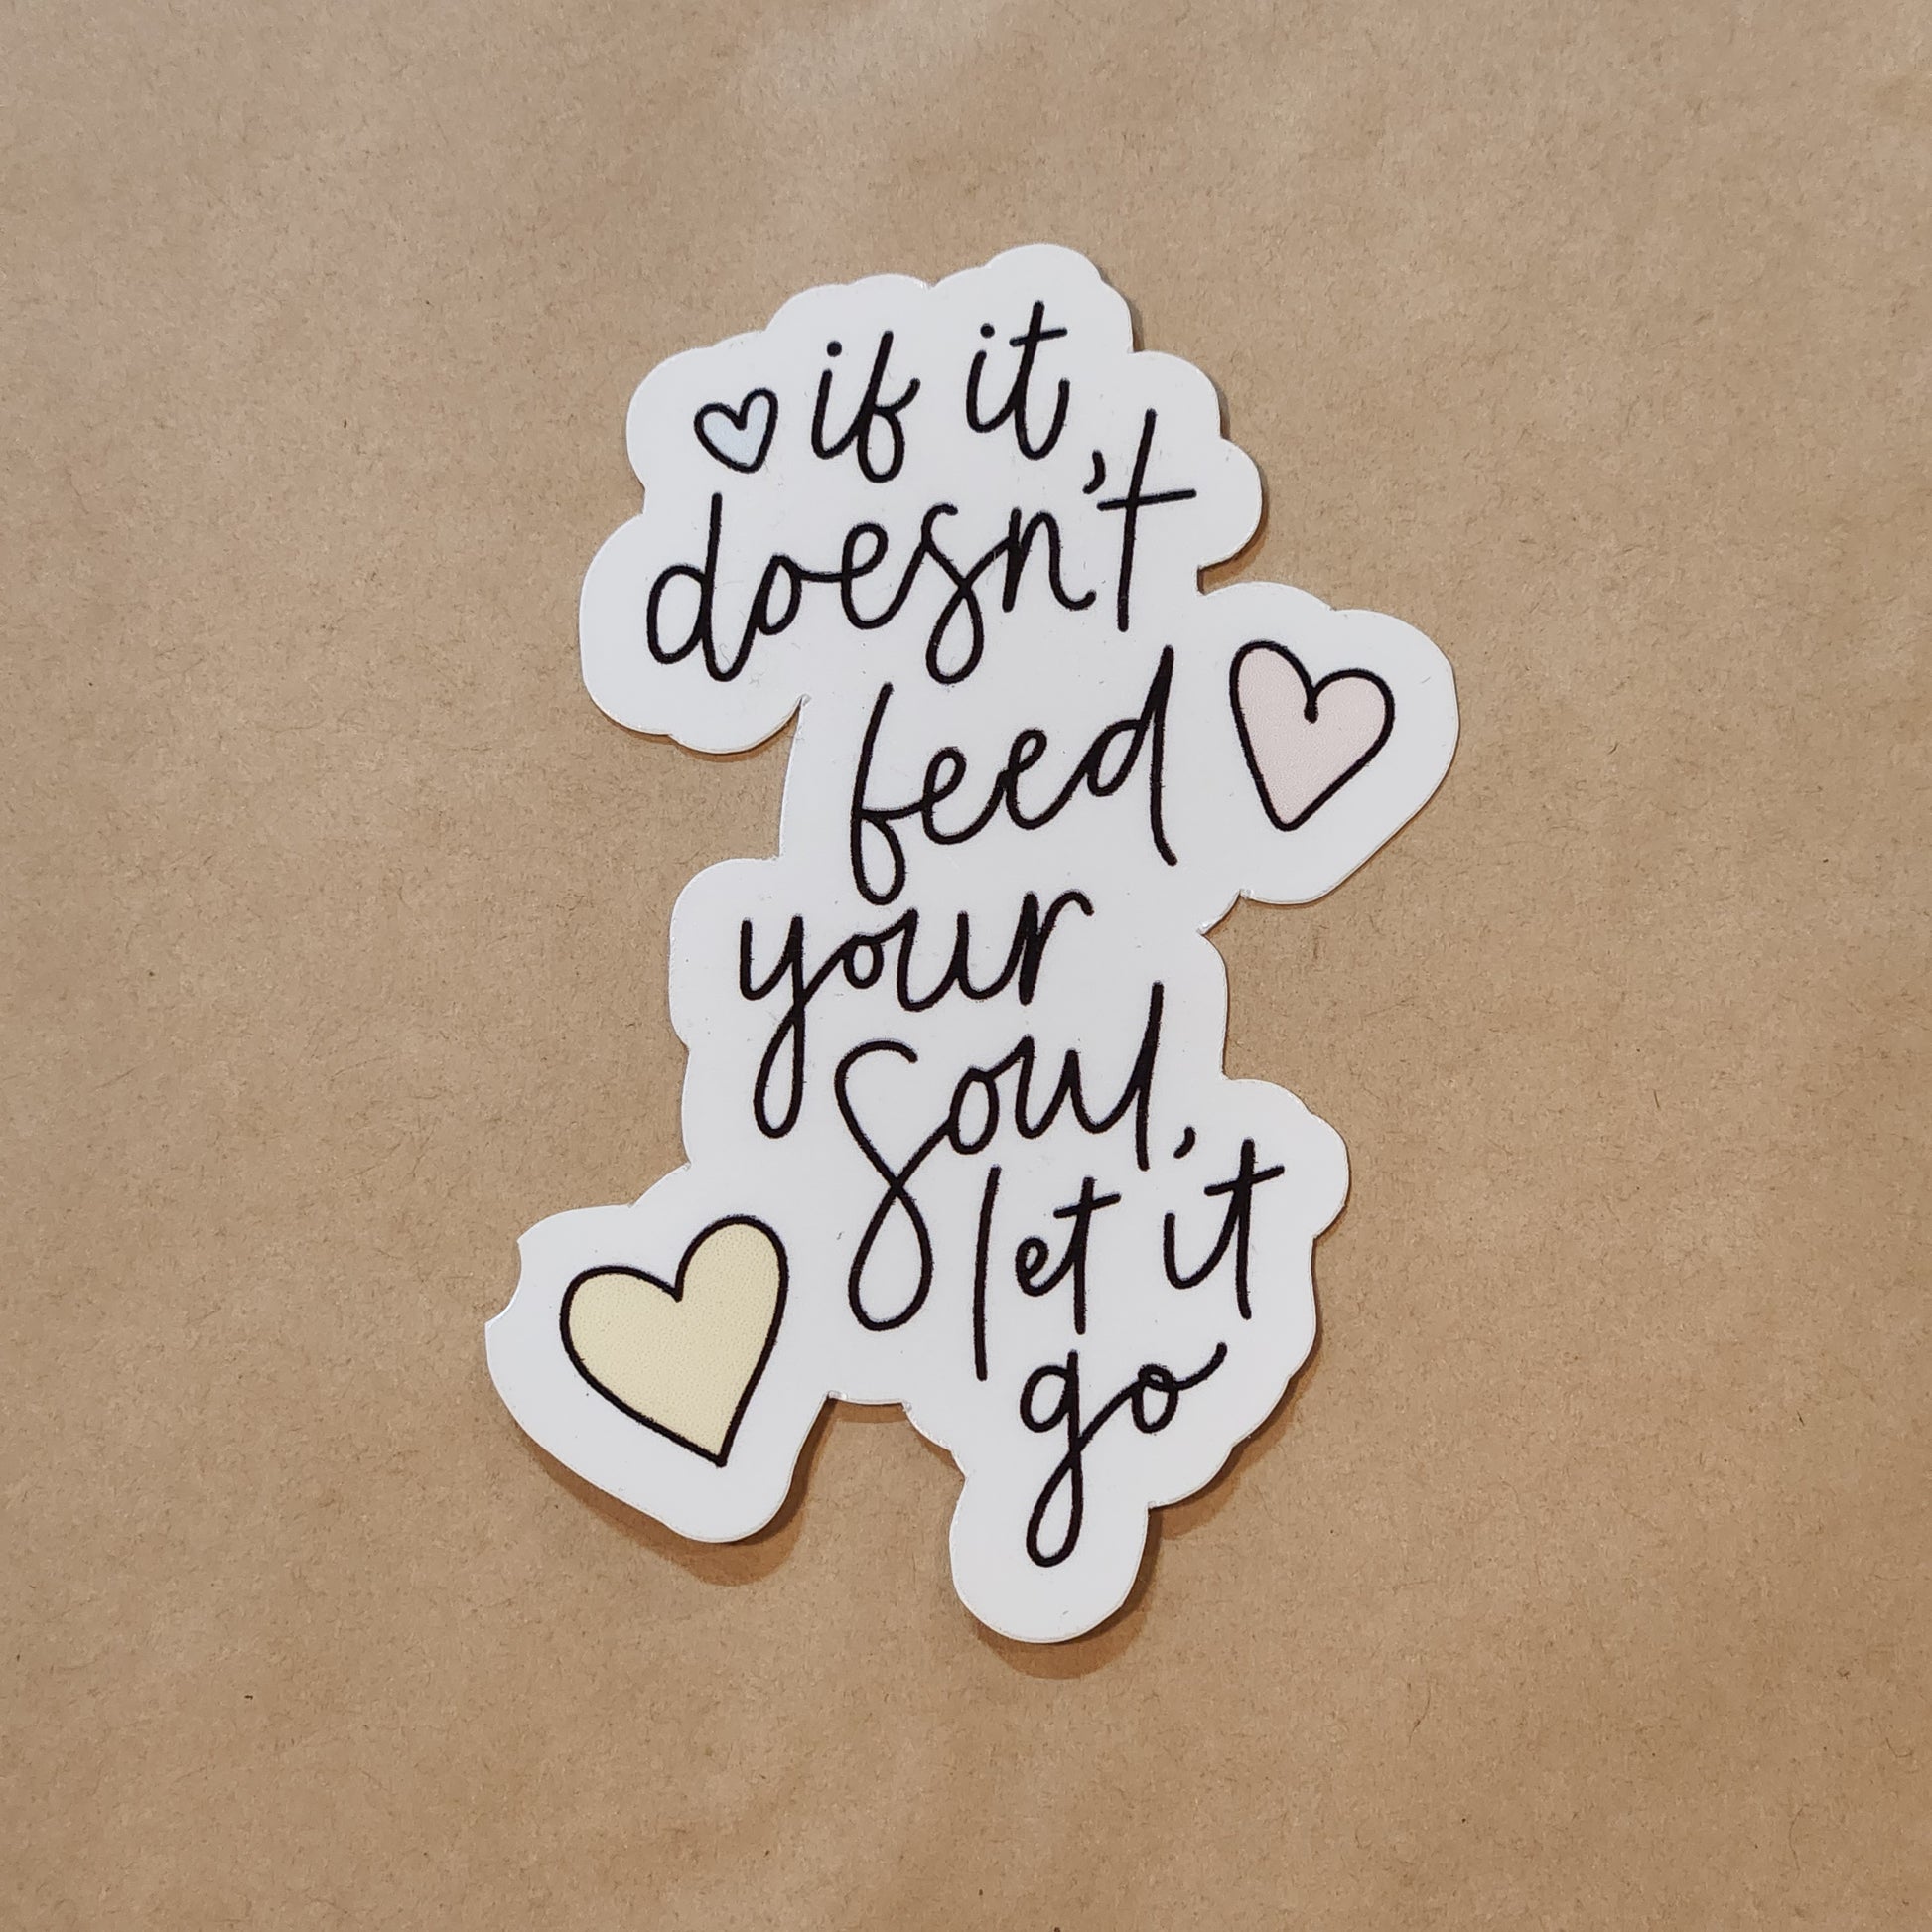 if it
doesn't
feed
your
soul,
let it
go